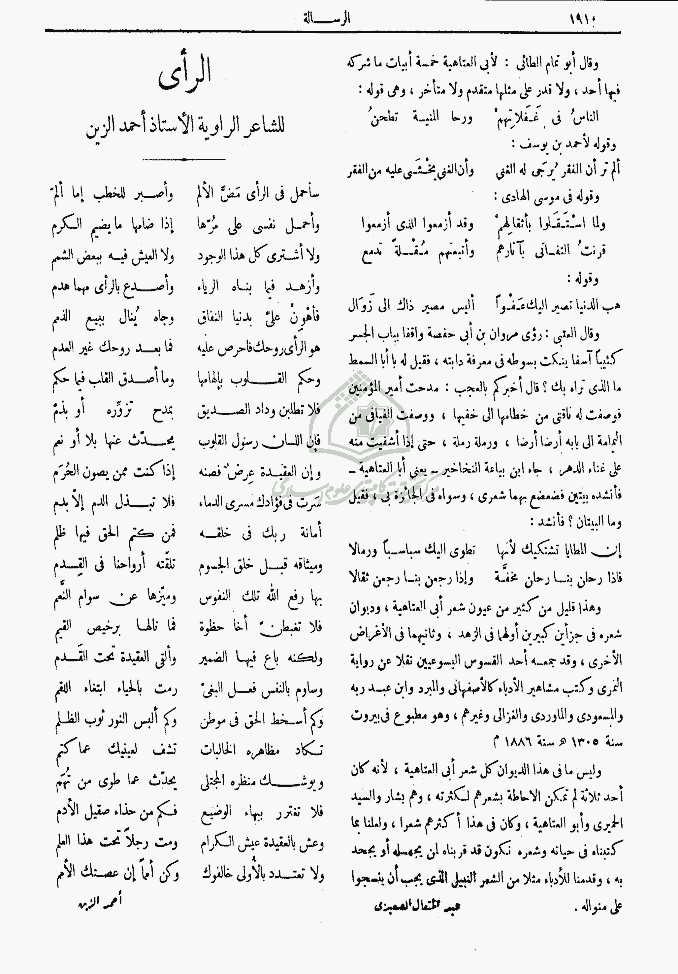 ١٩١٠
الرسالة
وقال أبو تمام الطائى : لأبى العتاهية خمسة أبيات ما شركه
فيها أحد ، ولا قدر على مثلها متقدم ولا متأخر ، وهى قوله :
الناسُ فى غَفَلاتِهِمْ ورحا المنية تطحنُ
وقوله لأحمد بن يوسف :
ألم تر أن الفقر يُرْجَى له الغنى وأن الغنى يُخْشَى عليه من الفقر
وقوله فى موسى الهادى :
ولما اسْتَقَلوا بأثقالِهِمْ وقد أزمعوا الذى أزمعوا
قرنتُ التفانى بآثارهم وأتبعتهم مُقْلةً تدمع
وقوله :
هب الدنيا تصير اليك عَفْواً أليس مصير ذاك الى زَوَال
وقال العتبى : رؤى مروان بن أبى حفصة واقفا بباب الجسر
كئيباً آسفا ينكت بسوطه فى معرفة دابته ، فقيل له يا أبا السمط
ما الذى تراه بك ؟ قال أخبركم بالعجب : مدحت أمير المؤمنين
فوصفت له ناقتى من خطامها الى خفيها ، ووصفت الفيافى من
اليمامة الى بابه أرضا أرضا ، ورملة رملة ، حتى إذا أشفيت منه
على غناء الدهر ، جاء ابن بياعة النخاخير ـ يعنى أبا العتاهية ـ
فأنشده بيتين فضعضع بهما شعرى ، وسواه فى الجائزة بى ، فقيل
وما البيتان ؟ فأنشد :
إن المطايا تشتكيك لأنها تطوى اليك سباسباً ورمالا
فاذا رحان بنا رحان مخفَّة وإذا رجعن بنا رجعن ثقالا
وهذا قليل من كثير من عيون شعر أبى العتاهية ، وديوان
شعره فى جزأين كبيرين أولهما فى الزهد ، وثانيهما فى الأغراض
الأخرى ، وقد جمعه أحد القسوس اليسوعيين نقلا عن رواية
النمرى وكتب مشاهير الأدباء كالأصفهانى والمبرد وابن عبد ربه
والمسعودى والماوردى والغزالى وغيرهم ، وهو مطبوع فى بيروت
سنة ١٣٠٥ ه سنة ١٨٨٦ م
وليس ما فى هذا الديوان كل شعر أبى العتاهية ، لأنه كان
أحد ثلاثة لم تمكن الاحاطة بشعرهم لكثرته ، وهم بشار والسيد
الحميرى وأبو العتاهية ، وكان فى هذا أكثرهم شعرا ، ولعلنا بما
كتبناه فى حياته وشعره نكون قد قربناه لمن يجهله أو يجحد
به ، وقدمنا للأدباء مثلا من الشعر النبيل الذى يجب أن ينسجوا
على منواله .
عبد المتعال الصعيدى
الرأى
للشاعر الراوية الأستاذ أحمد الزين
سأحمل فى الرأى مَضَّ الألم وأصبر للخطب إما ألمّ
وأحمل نفسى على مُرِّها إذا ضامها ما يضيم الكرم
ولا أشترى كل هذا الوجود ولا العيش فيه ببعض الشمم
وأزهد فيما بناه الرياء وأصدع بالرأى مهما هدم
فأهْونْ علىَّ بدنيا النفاق وجاه يُنال ببيع الذمم
هو الرأى روحك فاحرص عليه فما بعد روحك غير العدم
وحكم القلوب بإلهامها وما أصدق القلب فيما حكم
فلا تطلبن وداد الصديق بمدح تزوِّره أو بذم
فإن اللسان رسول القلوب يحدّث عنها بلا أو نعم
وإن العقيدة عِرضٌ فصنه إذا كنت ممن يصون الحُرَم
سَرَت فى فؤادك مسرى الدماء فلا تبذل الدم إلا بدم
أمانة ربك فى خلقه فمن كتم الحق فيها ظلم
وميثاقه قبل خلق الجسوم تلقّته أرواحنا فى القِدم
بها رفع الله تلك النفوس وميّزها عن سوام النَّعم
فلا تغبطنّ أخا حظوة فما نالها برخيص القيم
ولكنه باع فيها الضمير وألقى العقيدة تحت القَدم
وساوم بالنفس فعل البغىّ رمت بالحياء ابتغاء اللقم
وكم أسخط الحق فى موطن وكم ألبس النور ثوب الظلم
تكاد مظاهره الخالبات تشف لعينيك عما كتم
ويوشك منظره المجتلى يحدّث عما طوى من تُهَم
فلا تغترر ببهاء الوضيع فكم من حذاء صقيل الأدم
وعش بالعقيدة عيش الكرام ومت رجلاً تحت هذا العلم
ولا تعتدد بالأُولى خالفوك وكن أمماً إن عصتك الأمم
أحمد الزين